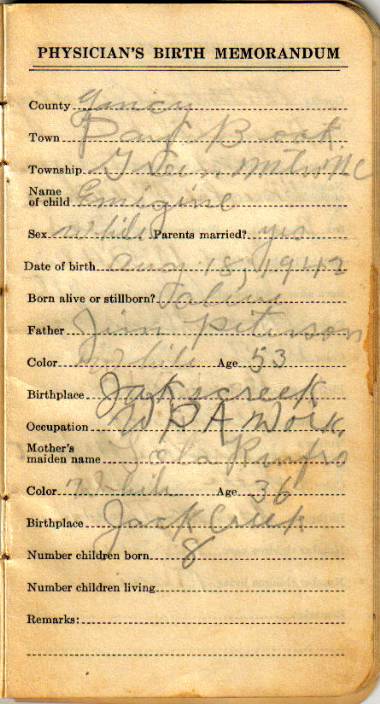 PHYSICIAN'S BIRTH MEMORANDUM
County Yancy
Town Book
Township Green Mtn NC
Name
of child Emigine
Sex White Parents married? yes
Date of birth Aug 18, 1942
Born alive or stillborn? alive
Father Jim Peterson
Color White Age 53
Birthplace Jaks creek
Occupation WPA Work
Mother's
maiden name Renfro
Color White Age 36
Birthplace Jack Creek
Number children born 8
Number children living
Remarks: